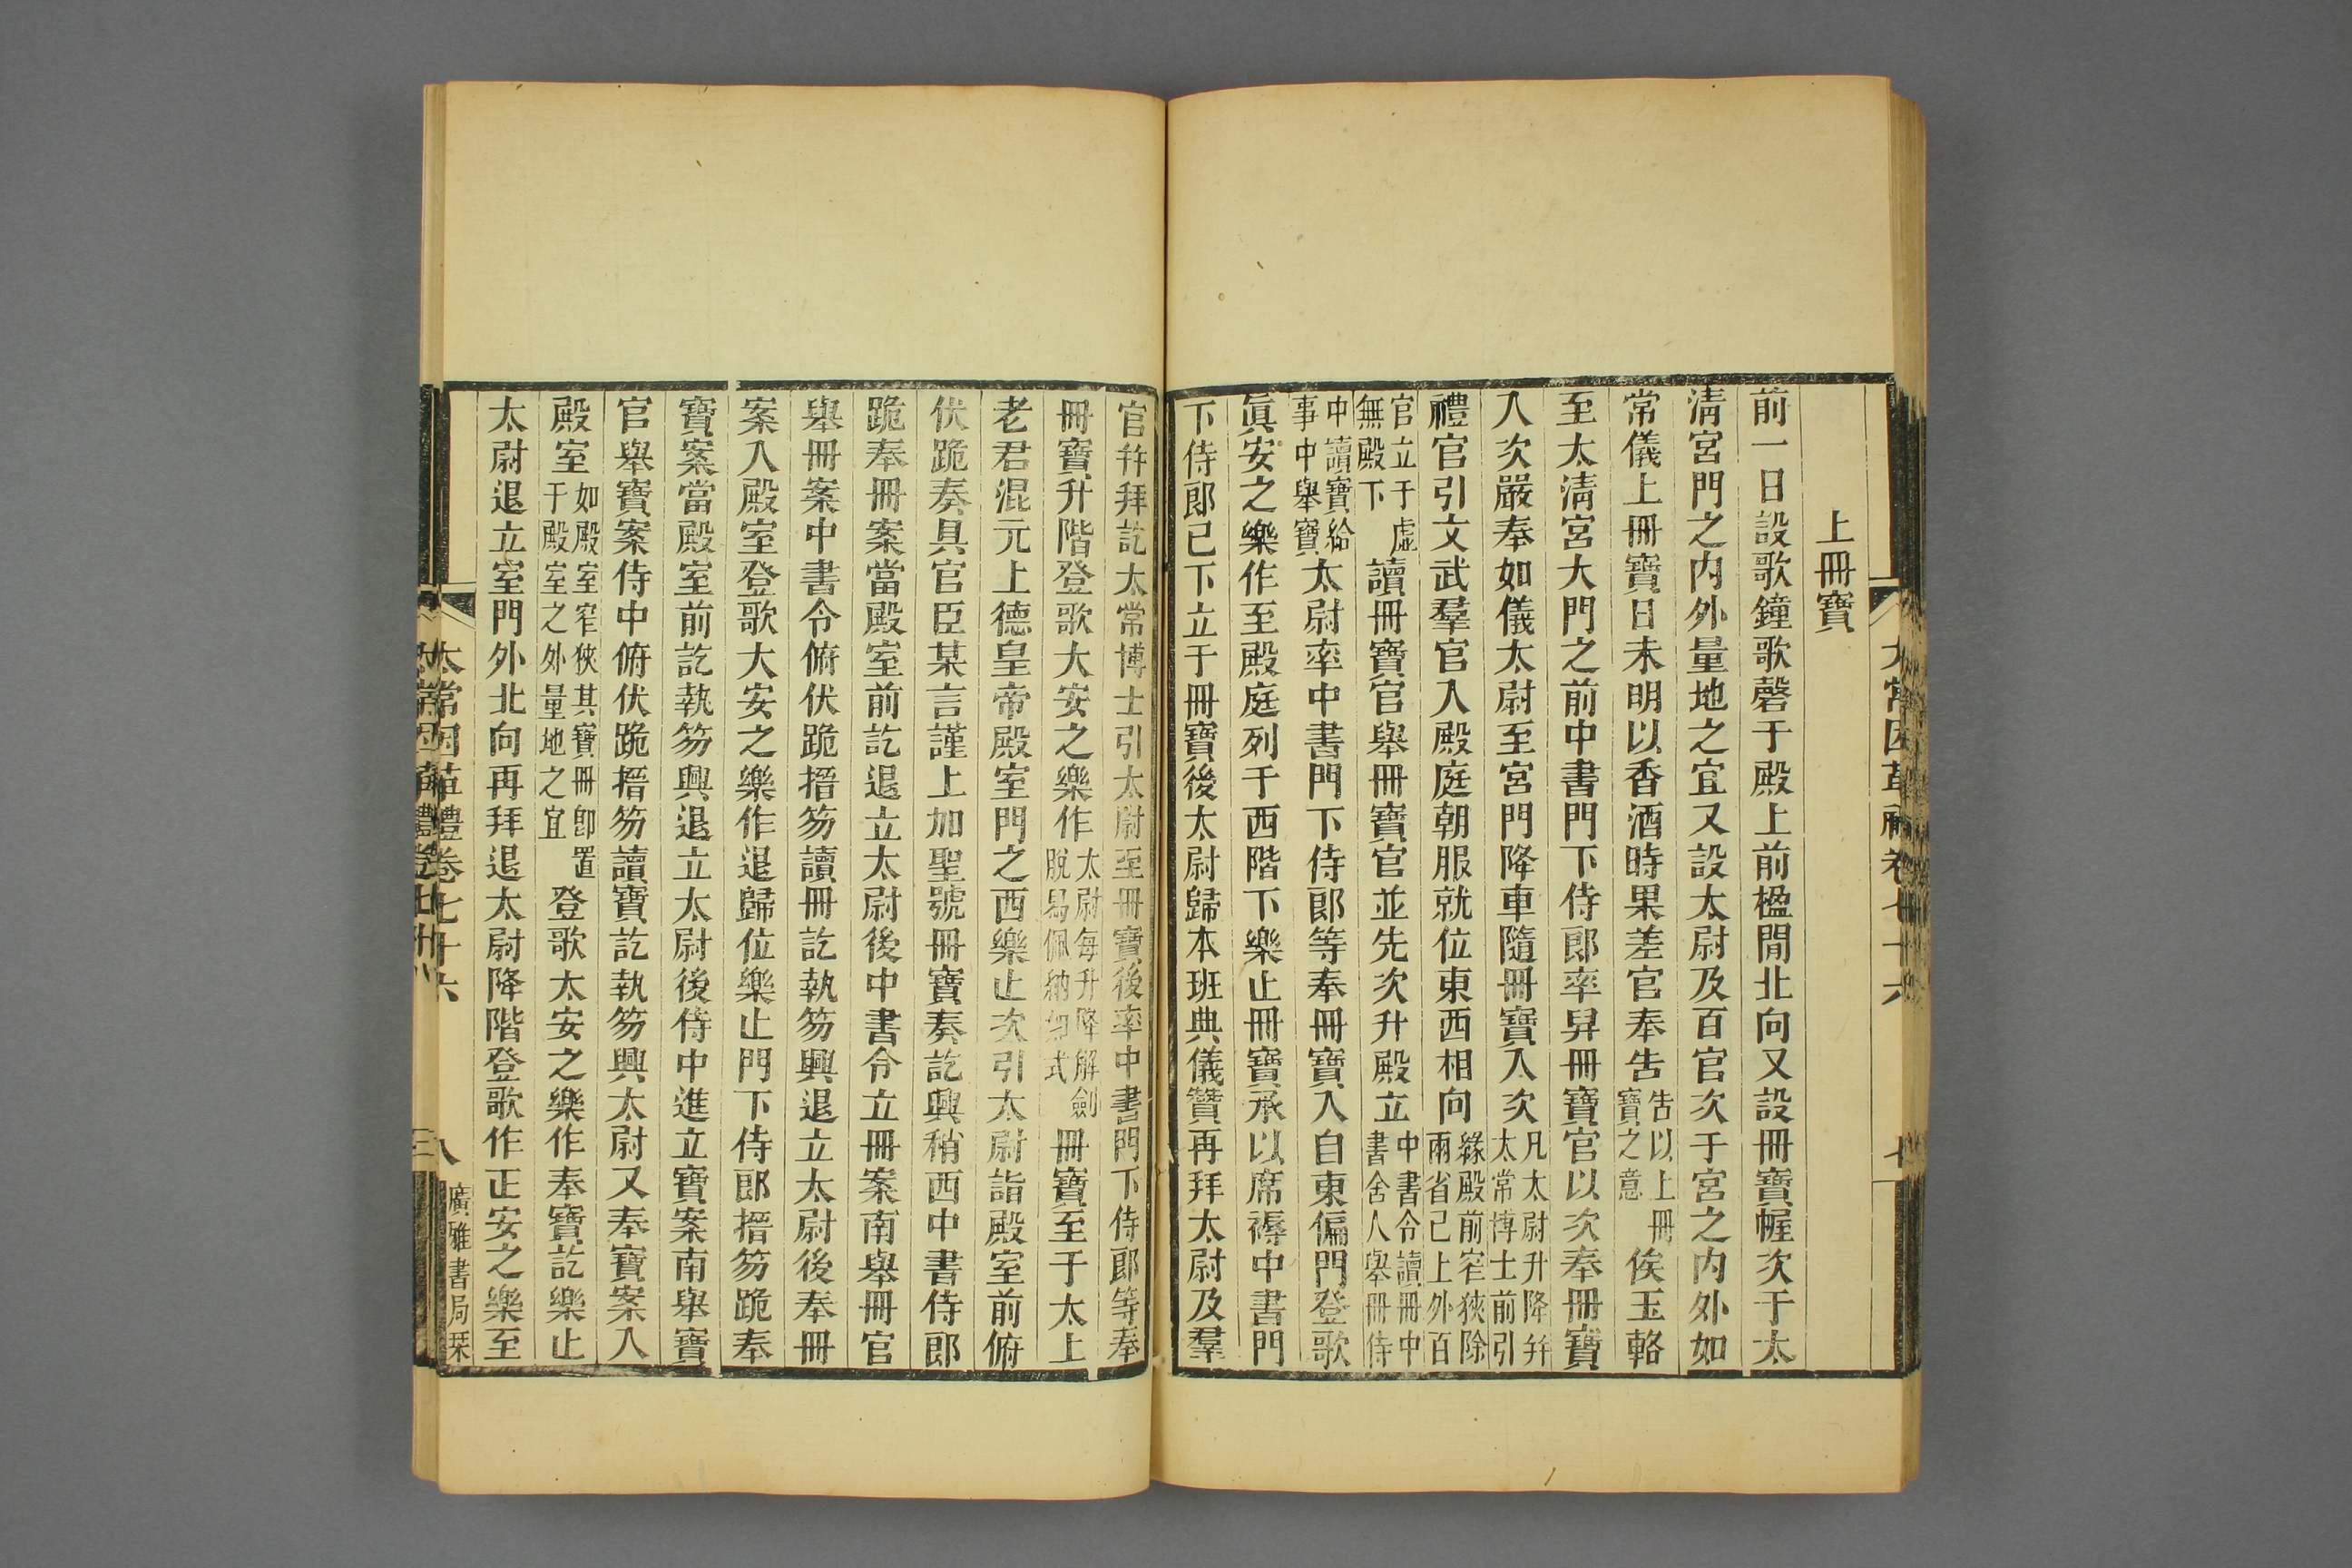 上冊寶
前一日設歌鐘歌磬于殿上前楹閒北向又設冊寶幄次于太
清宮門之內外量地之宜又設太尉及百官次于宮之內外如
常儀上冊寶日未明以香酒時果差官奉告告以上冊寶之意俟玉輅
至太清宮大門之前中書門下侍郎率舁冊寶官以次奉冊寶
入次嚴奉如儀太尉至宮門降車隨冊寶入次凡太尉升降幷太常博士前引
禮官引文武羣官入殿庭朝服就位東西相向緣殿前窄狹除兩省已上外百
官立于虛無殿下讀冊寶官舉冊寶官並先次升殿立中書令讀冊中書舍人舉冊侍
中讀寶給事中舉寶太尉率中書門下侍郎等奉冊寶入自東偏門登歌
眞安之樂作至殿庭列于西階下樂止冊寶承以席褥中書門
下侍郎已下立于冊寶後太尉歸本班典儀贊再拜太尉及羣
官幷拜訖太常博士引太尉至冊寶後率中書門下侍郎等奉
冊寶升階登歌大安之樂作太尉每升降解劍脫舄佩納如式冊寶至于太上
老君混元上德皇帝殿室門之西樂止次引太尉詣殿室前俯
伏跪奏具官臣某言謹上加聖號冊寶奏訖興稍西中書侍郎
跪奉冊案當殿室前訖退立太尉後中書令立冊案南舉冊官
舉冊案中書令俯伏跪搢笏讀冊訖執笏興退立太尉後奉冊
案入殿室登歌大安之樂作退歸位樂止門下侍郎搢笏跪奉
寶案當殿室前訖執笏興退立太尉後侍中進立寶案南舉寶
官舉寶案侍中俯伏跪搢笏讀寶訖執笏興太尉又奉寶案入
殿室如殿室窄狹其寶冊卽置于殿室之外量地之宜登歌大安之樂作奉寶訖樂止
太尉退立室門外北向再拜退太尉降階登歌作正安之樂至
太常因革禮卷七十六
八
廣雅書局栞